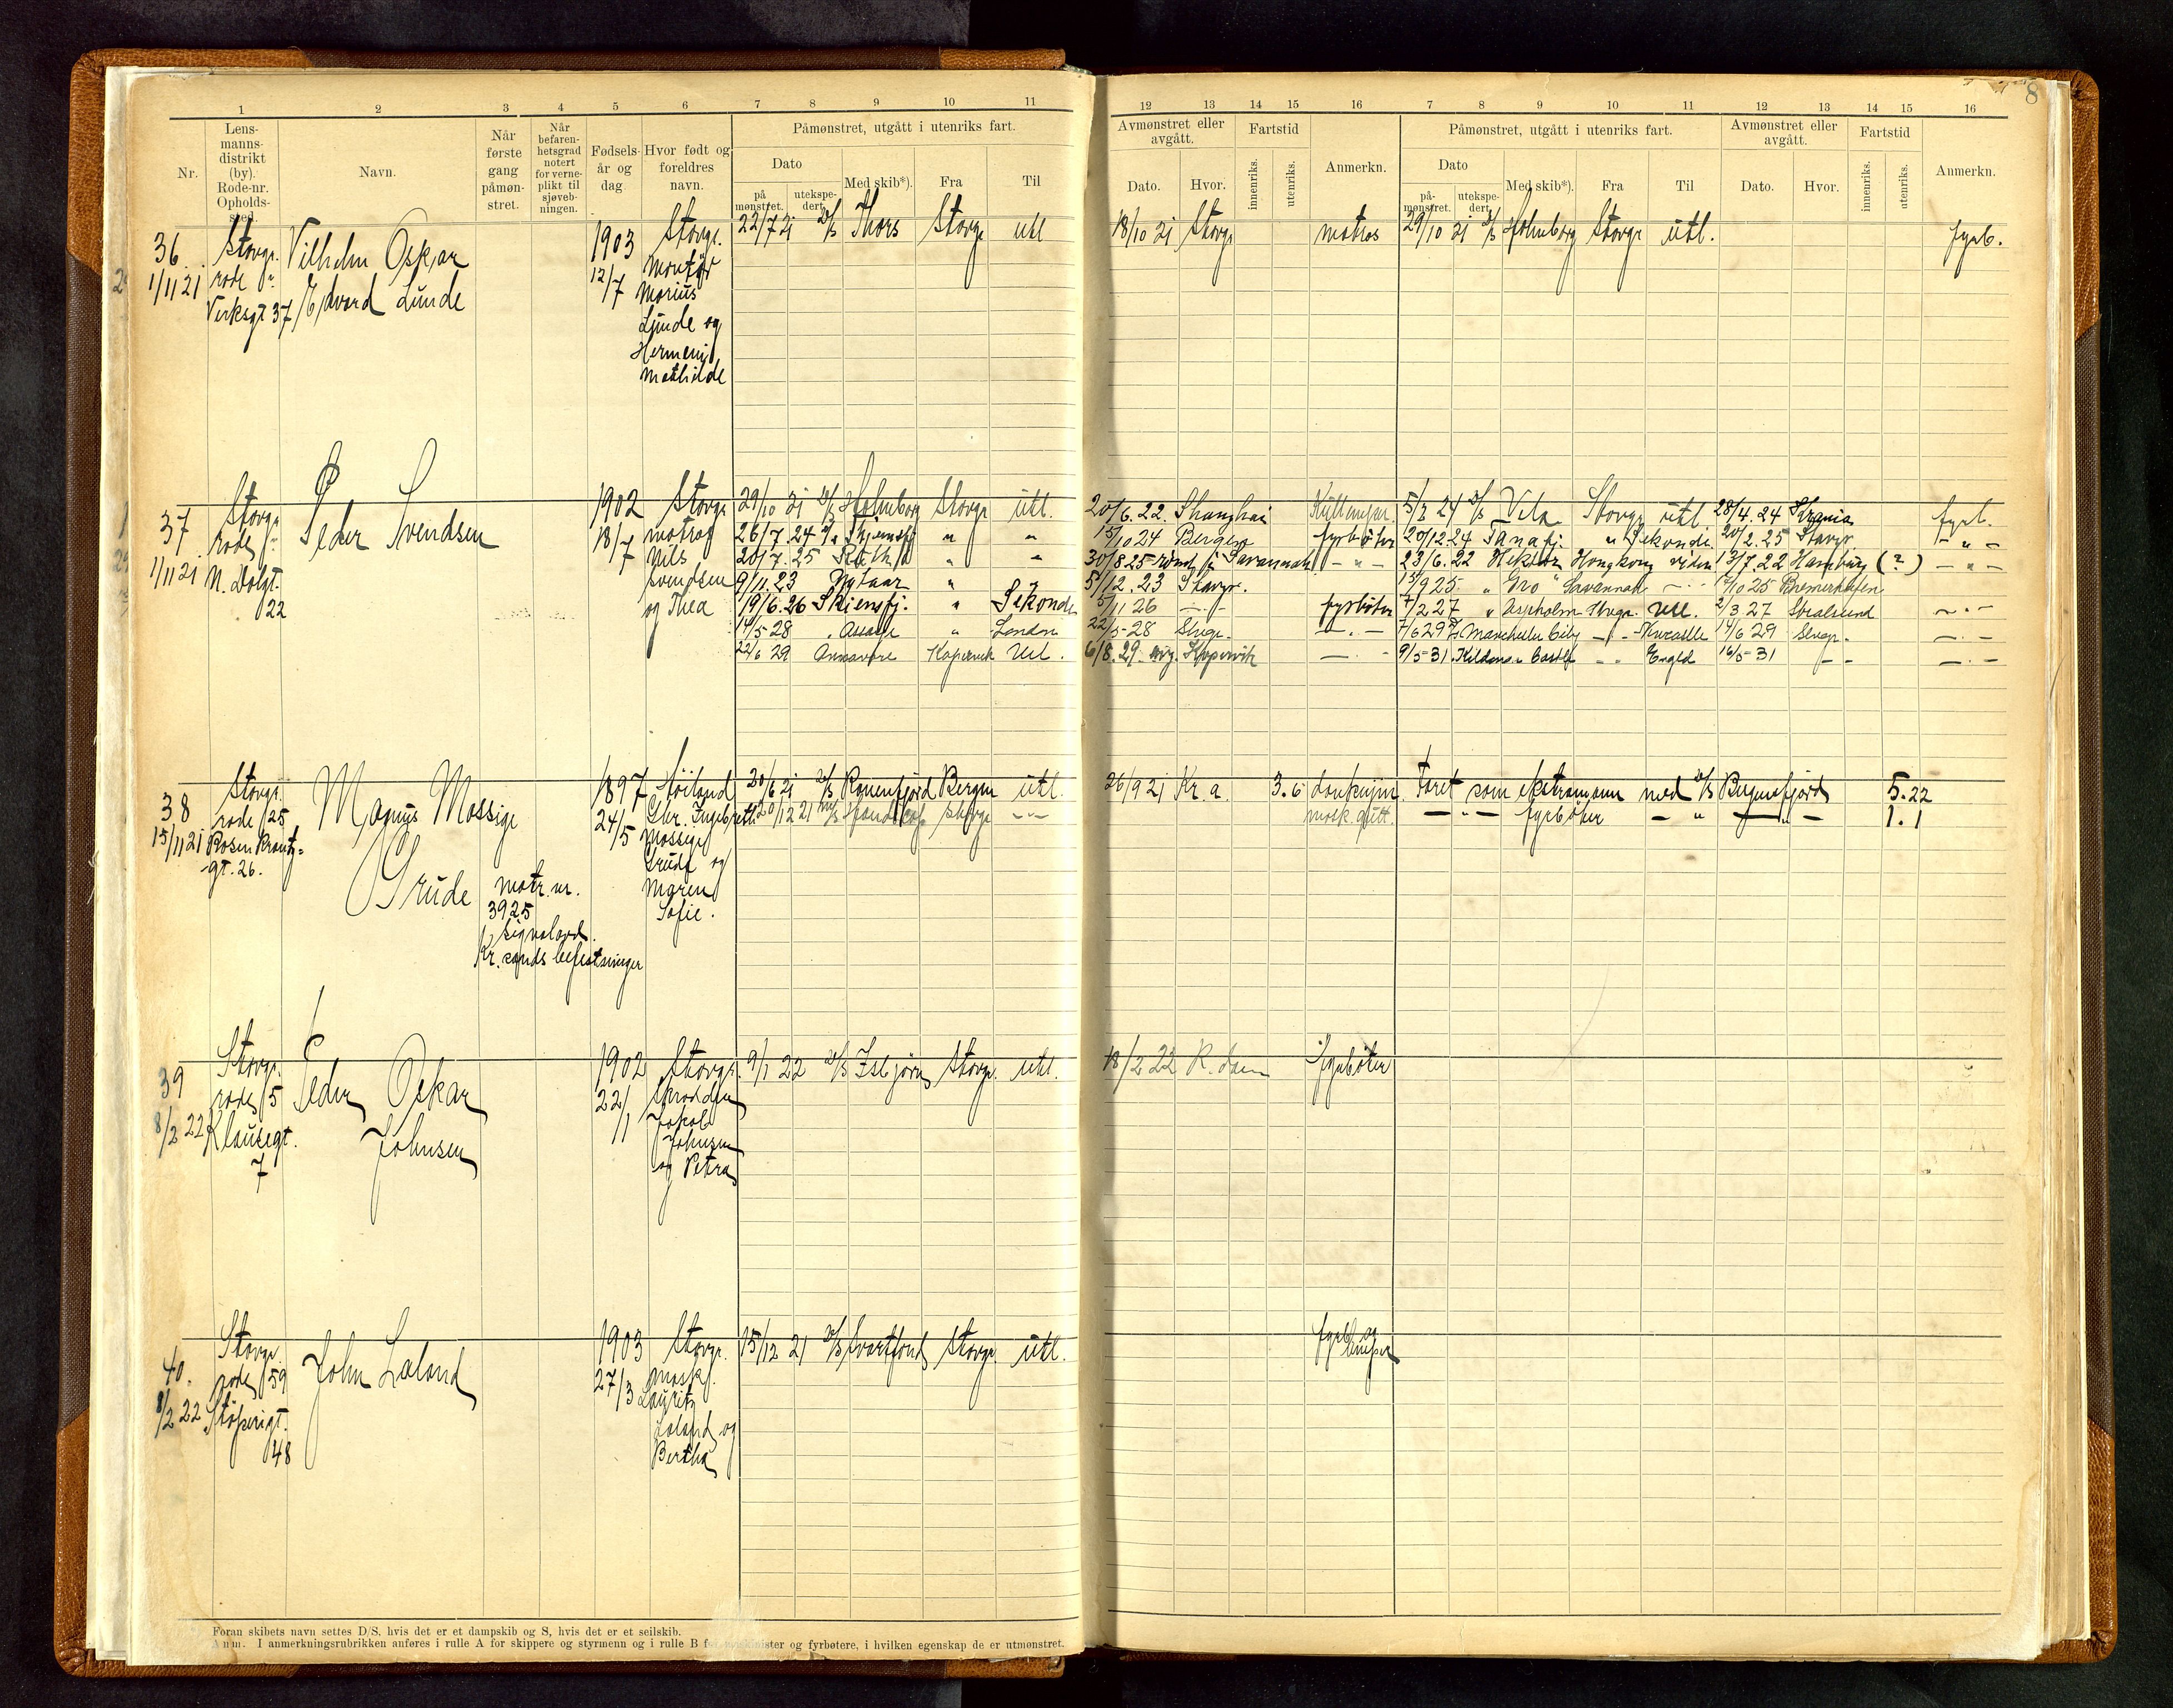 8
1 2 3 4 5 6 7 8 9 10 11
12 13 14 15 16 7 8 9 10 11 12 13 14 15 16
Nr.
Lens-
manns-
distrikt
(by).
Rode-nr.
Opholds-
sted.
Navn.
Når
første
gang
påmøn-
stret.
Når
befaren-
hetsgrad
notert
for verne-
plikt til
sjøveb-
ningen.
Fødsels-
år og
dag.
Hvor født og
foreldres
navn.
Påmønstret, utgått i utenriks fart.
Dato
på
mønstret.
utekspe-
dert.
Med skib*).
Fra
Til
Avmønstret eller
avgått.
Dato.
Hvor.
Fartstid
innenriks.
utenriks.
Anmerkn.
Påmønstret, utgått i utenriks fart.
Dato
på-
mønstret.
utekspe-
dert.
Med skib*).
Fra
Til
Avmønstret eller
avgått.
Dato.
Hvor.
Fartstid
innenriks.
utenriks.
Anmerkn.
36
1/11 21
Stavgr.
rode
Verksgt 37
Vilhelm Oskar
Edvard Lunde
1903
12/7
Stavgr.
Montør
Marius
Lunde og
Mathilde
22/7 21 D/S Thors Stavgr utl
18/10 21 Stavgr matros 29/10 21 D/S Holmborg Stavgr utl. fyrb.
37
1/11 21
Stavgr
rode
22
Peder Svendsen
1902
18/7
Stavgr
matros
Nils
Svendsen
og Thea
29/10 21 D/S Holmborg Stavgr utl.
26/7.24 Skjensfj " "
20/7.25 " "
9/11.23 "
19/6.26 Skiensfj. " Sekondi
14/5-28 " London
22/6 29 Kopervik Utl.
20/6.22. Shanghai 24 D/S Vela Stavgr utl 28/4.24 fyrb.
15/10 24 Bergen fyrbøter 20/12 24 Tanafj. " Sekondi 20/2.25 Stavgr - " -
30/8 25 Savannah - " - 23/6.22 Hektor Hongkong 13/7.22 Hamburg (?) - " -
5/12.23 Stavgr. 15/9 25 " Gro " Savannah 25 Bremerhafen
5/11 26 fyrbøter 7/2 27 " Aspholm Utl. 2/3 27 Stralsund
22/5-28 Stvgr. 7/6 29 Manchester City 14/6 29 Stvgr.
6/8.29 Kopervik 9/5-31 Kildonan Castle Engld 16/5-31
38
15/11 21
Stavgr.
rode 25
Rosenkrantz-
gt. 26.
Magnus Mossige
Grude
matr. nr.
3925
Kr.sands befestninger
1897
24/5
Høiland
Mossige
Grude og
Maren
Sofie.
20/6 21 D/S Ranenfjord Bergen utl.
20/12 21 Stavgr - " -
26/9 21 Kr.a. 3.6 donkeym. Faret som ekstramann med D/S Bergensfjord 5.22
- " - fyrbøter - " - - " - 1.1
39
8/2 22
Stavgr.
rode 5
Klausegt.
7
Peder Oskar
Johnsen
1902
22/1
Stavgr.
Skrædder
Jakob
Johnsen
og Petra
9/1 22 D/S Isbjørn Stavgr. utl.
18/2 22 R.dam fyrbøter
40.
8/2 22
Stavgr.
rode 59
Støperigt.
48
John Laland
1903
27/3
Stavgr.
mask.
Lauritz
Laland og
Bertha
15/12 21 D/S Svartfond Stavgr. utl.
fyrb. og
lemper
Foran skibets navn settes D/S, hvis det er et dampskib og S, hvis det er et seilskib.
Anm. I anmerkningsrubrikken anføres i rulle A for skippere og styrmenn og i rulle B for maskinister og fyrbøtere, i hvilken egenskap de er utmønstret.